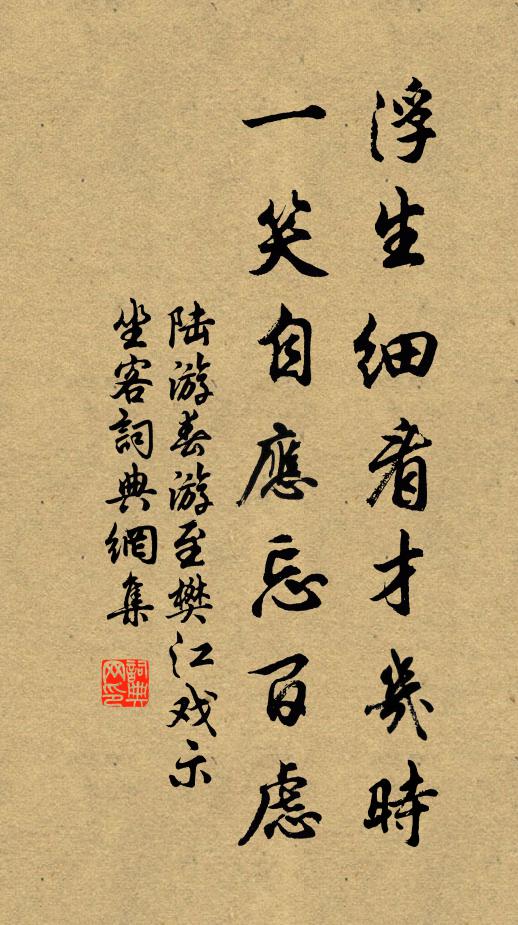 浮生细看才幾時
一笑自應忘百慮
陆游春游至樊江戏示
坐客詞典網集
詞典网印